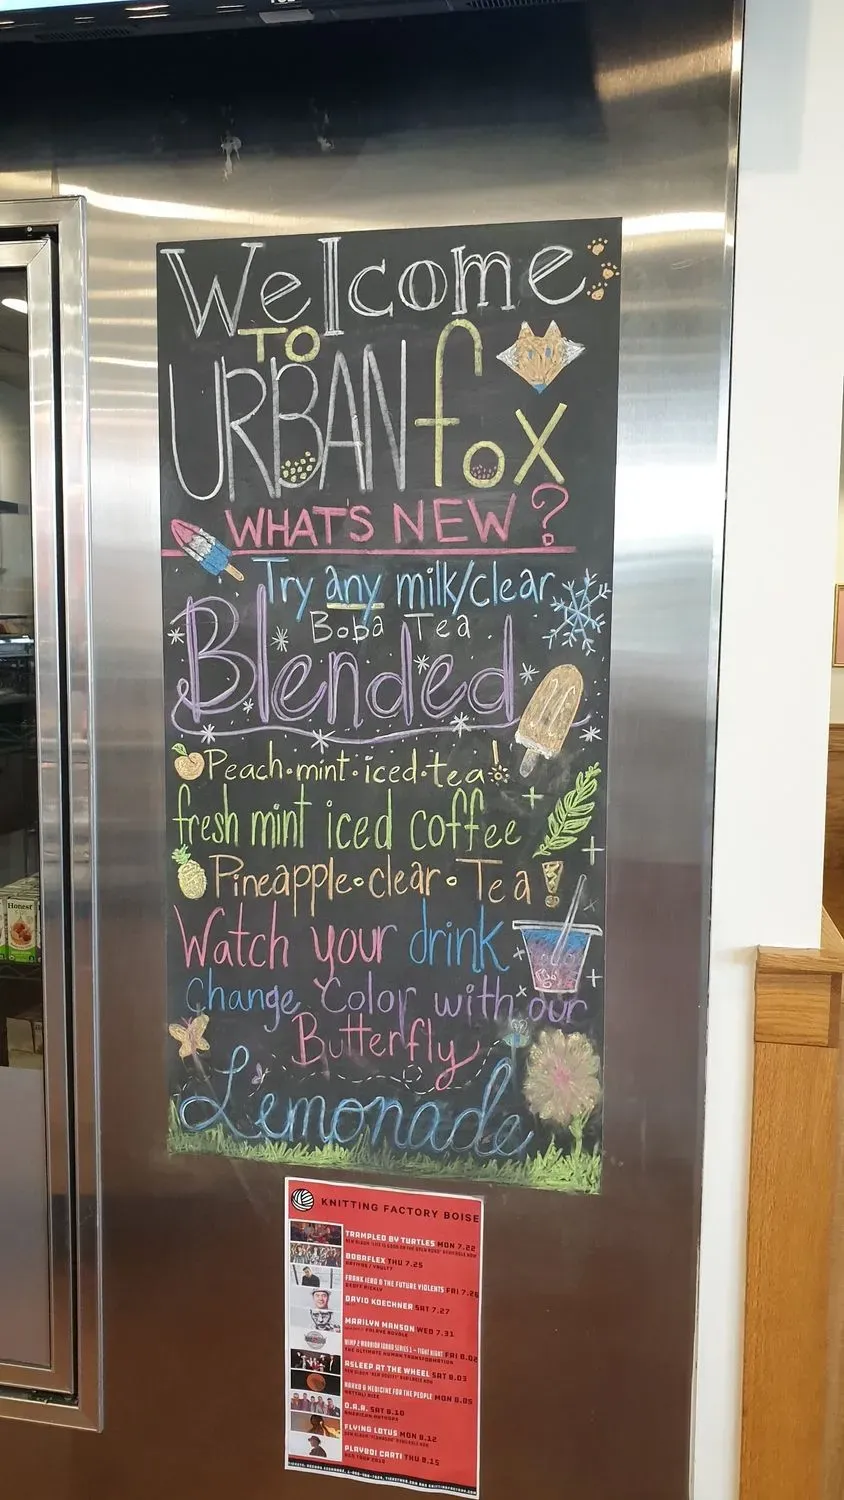 Welcome
TO
URBAN fox
WHAT'S NEW?
Try any milk/clear
Boba Tea
Blended
Peach·mint·iced·tea!
fresh mint iced coffee
Pineapple·clear·Tea!
Watch your drink
Change Color with our
Butterfly
Lemonade
Honest
KNITTING FACTORY BOISE
TRAMPLED BY TURTLES MON 7.22
BOBAFLEX THU 7.25
FRANK IERO & THE FUTURE VIOLENTS FRI 7.26
GEOFF RICKLY
DAVID KOECHNER SAT 7.27
MARILYN MANSON WED 7.31
FIGHT NIGHT FRI 8.02
THE ULTIMATE HUMAN TRANSFORMATION
ASLEEP AT THE WHEEL SAT 8.03
NAHKO & MEDICINE FOR THE PEOPLE MON 8.05
O.A.R. SAT 8.10
AMERICAN AUTHORS
FLYING LOTUS MON 8.12
PLAYBOI CARTI THU 8.15